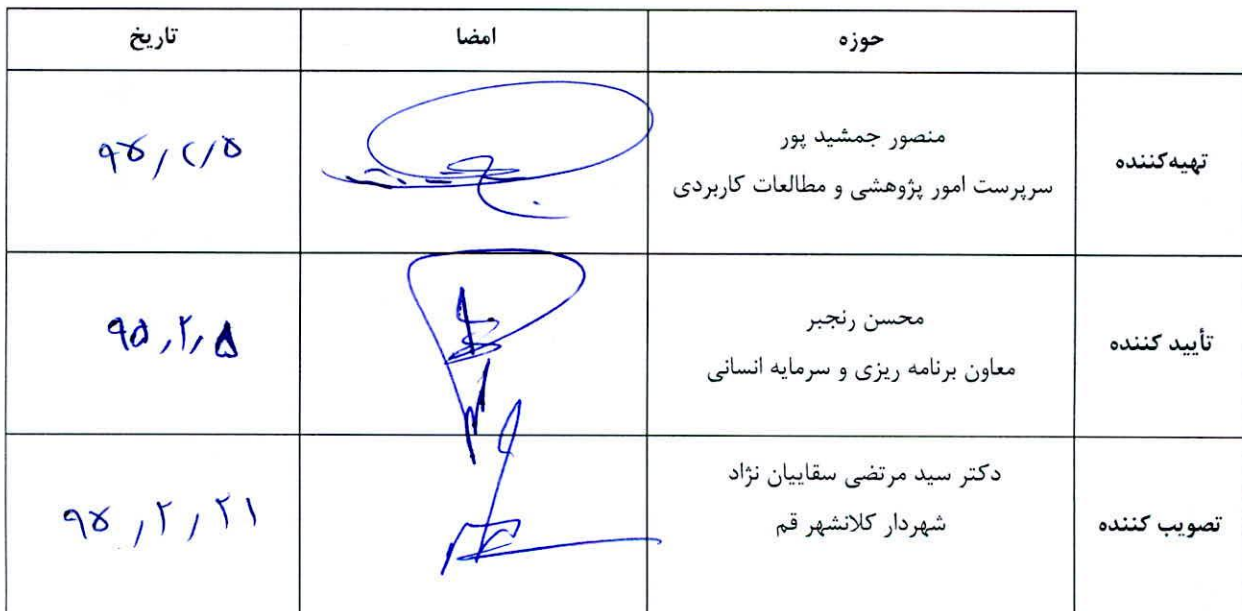 حوزه امضا تاریخ
تهیه‌کننده
منصور جمشید پور
سرپرست امور پژوهشی و مطالعات کاربردی
۹۵/۲/۵
تأیید کننده
محسن رنجبر
معاون برنامه ریزی و سرمایه انسانی
۹۵/۲/۵
تصویب کننده
دکتر سید مرتضی سقاییان نژاد
شهردار کلانشهر قم
۹۵/۲/۲۱